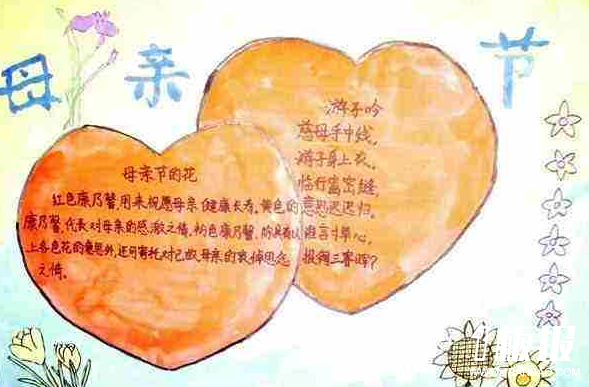 母亲节
游子吟
慈母手中线,
游子身上衣。
临行密密缝,
意恐迟迟归。
谁言寸草心,
报得三春晖?
母亲节的花
红色康乃馨,用来祝愿母亲健康长寿,黄色的
康乃馨,代表对母亲的感激之情,粉色康乃馨,除具有以
上各色花的意思外,还可寄托对已故母亲的哀悼思念
之情。
板报